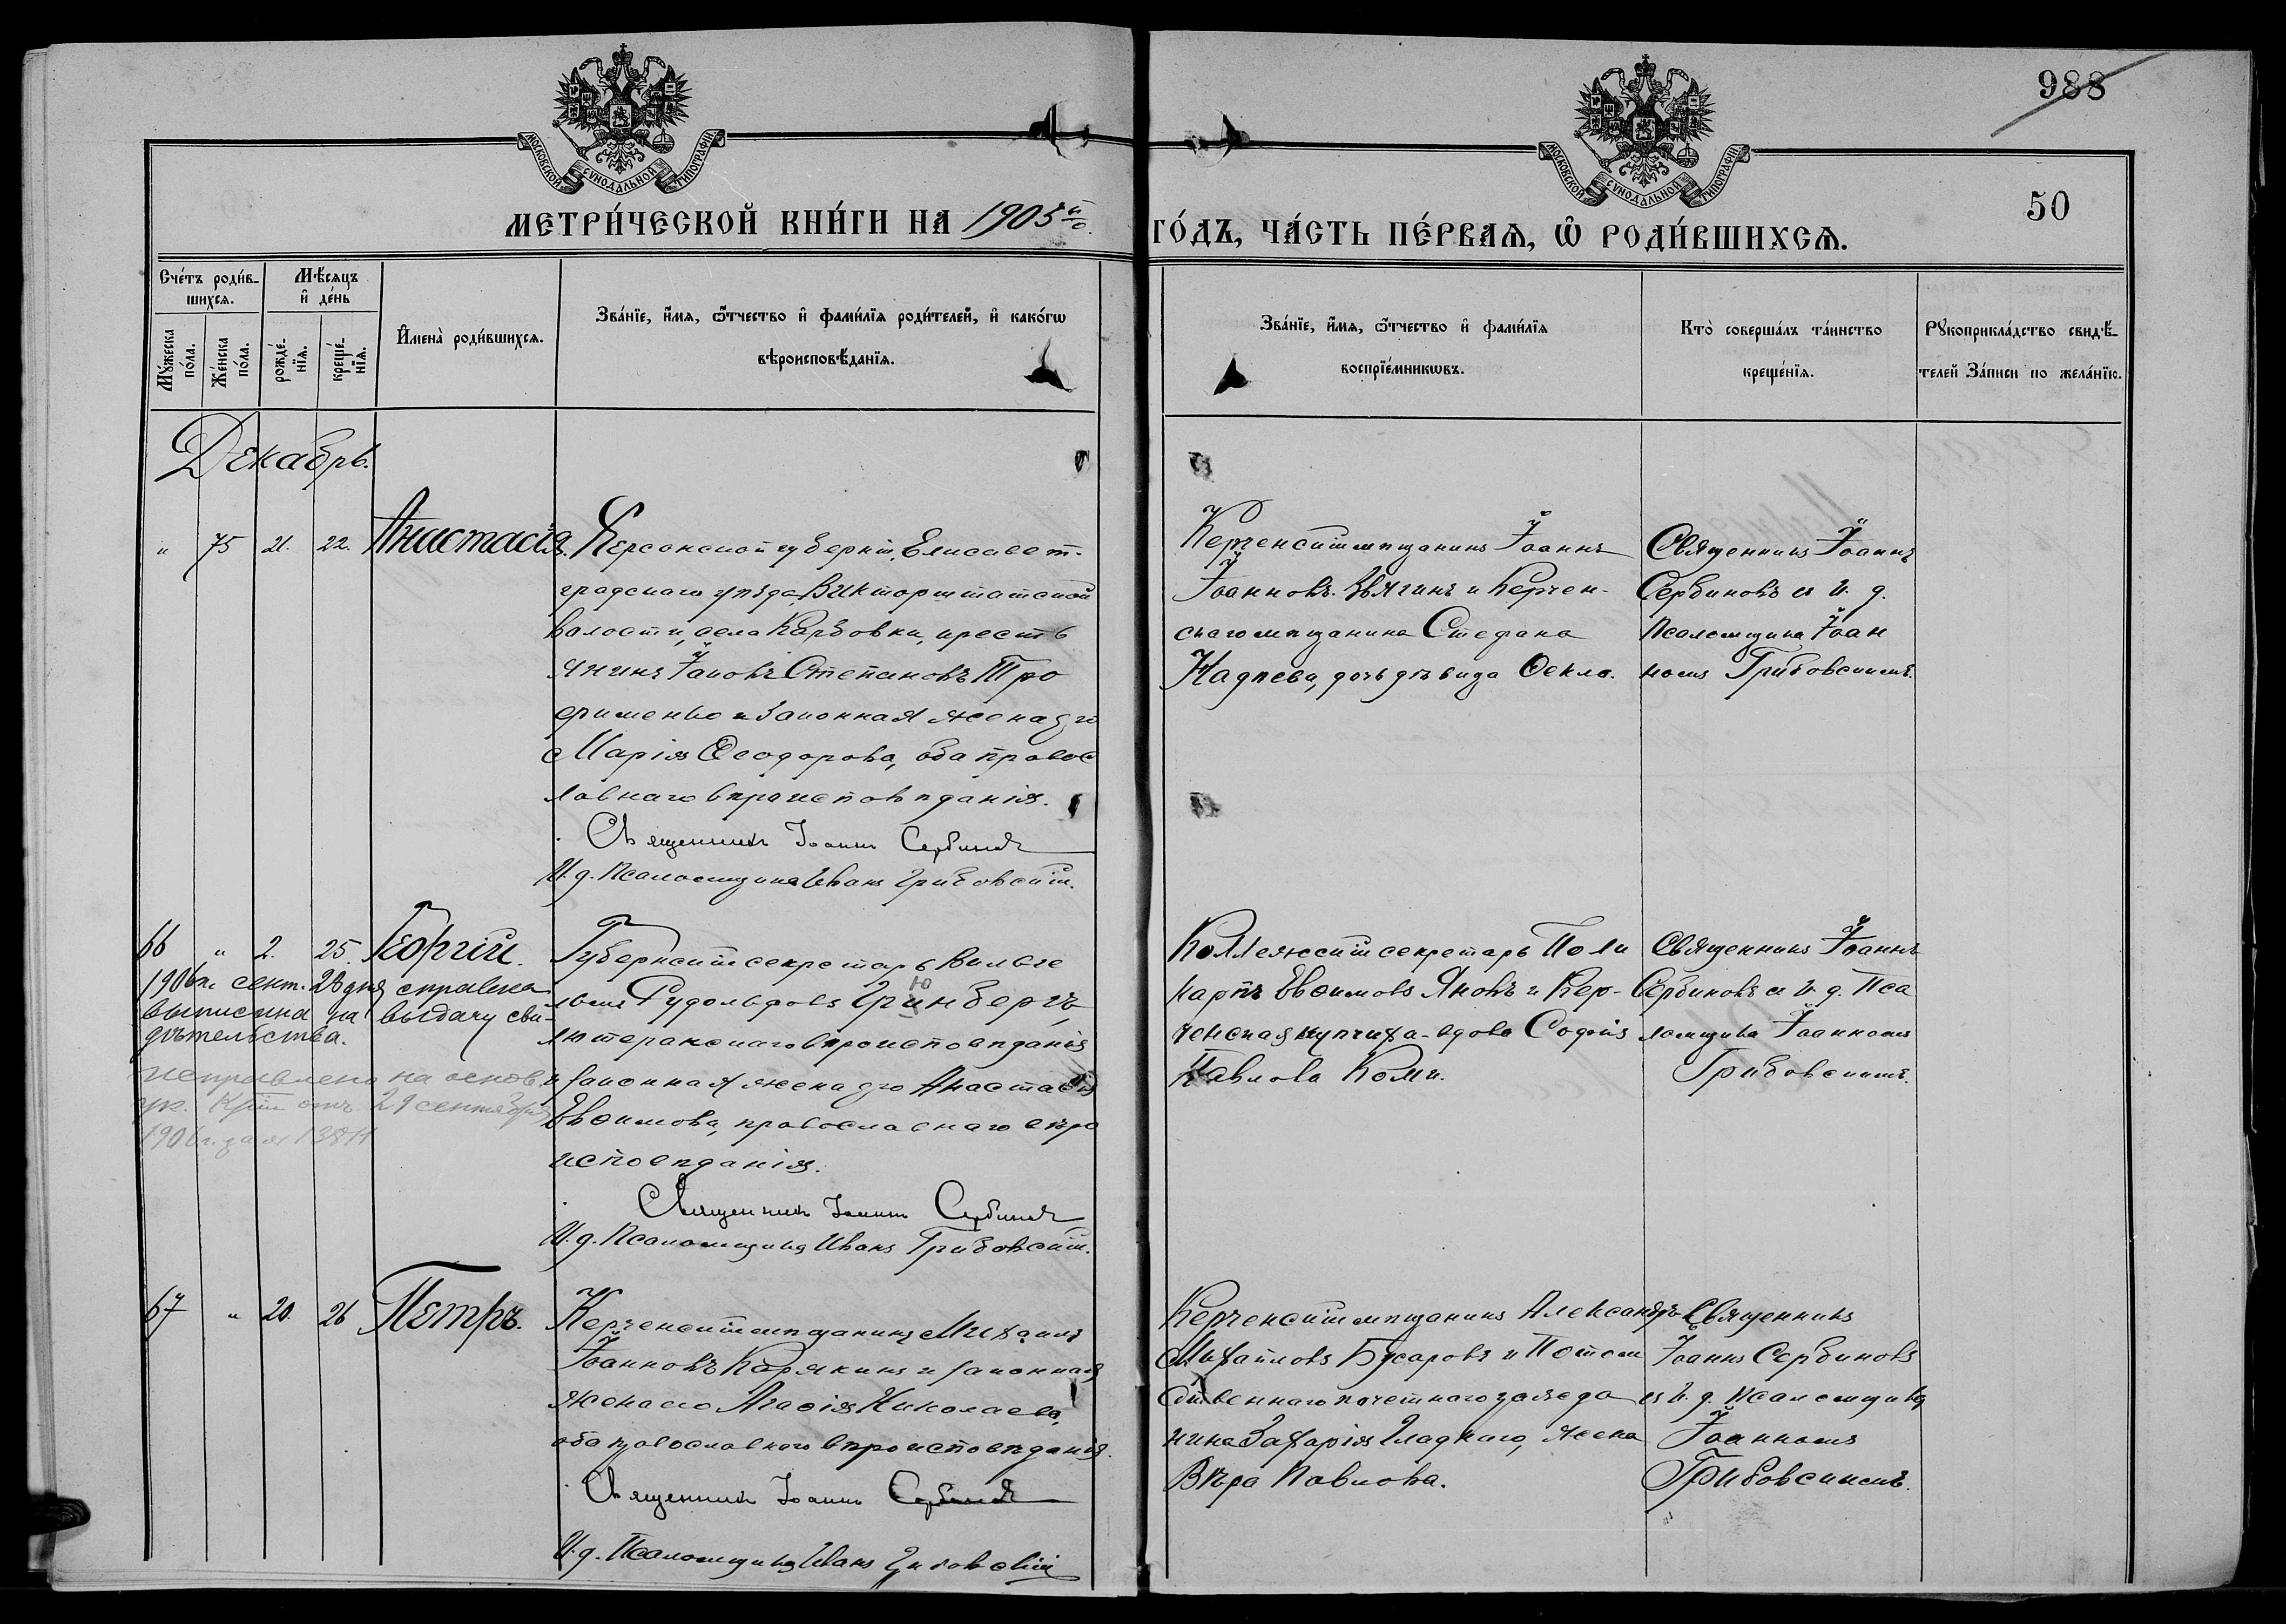 988
50
МОСКОВСКОЙ СѴНОДАЛЬНОЙ ТИПОГРАФІИ
МОСКОВСКОЙ СѴНОДАЛЬНОЙ ТИПОГРАФІИ
МЕТРИ́ЧЕСКОЙ КНИ́ГИ НА 1905й
ГО́ДЪ, ЧА́СТЬ ПЕ́РВАѦ, Ѽ РОДИ́ВШИХСѦ.
Сче́тъ роди́в-
шихсѧ.
Мѣ́сѧцъ
и҆ де́нь
Мꙋ́жеска по́ла.
Же́нска по́ла.
рожде́-нїѧ.
креще́-нїѧ.
И҆мена̀ роди́вшихсѧ.
Зва́нїе, и҆́мѧ, ѻ҆́тчество и҆ фами́лїѧ роди́телей, и҆ како́гѡ
вѣроисповѣ́данїѧ.
Зва́нїе, и҆́мѧ, ѻ҆́тчество и҆ фами́лїѧ
воспрїе́мникѡвъ.
Кто̀ соверша́лъ та́инство
креще́нїѧ.
Рꙋкоприкла́дство свидѣ́-
телей За́писи по жела́нїю.
Декабрь.
" 75 21. 22. Анастасія.
Херсонской губерніи, Елисавет-
градскаго уѣзда, Викторштатской
волости, села Карловки, кресть
янинъ Іаковъ Степановъ Тро
фименко и законная жена его
Марія Ѳеодорова, оба правос
лавнаго вѣроисповѣданія.
Священникъ Іоаннъ Сербиновъ
И. д. Псаломщика Иванъ Грибовскій.
Керченскій мѣщанинъ Іоаннъ
Іоанновъ Звягинъ и Керчен-
скаго мѣщанина Стефана
Надѣева, дочь дѣвица Ѳекла.
Священникъ Іоаннъ
Сербиновъ съ И. д.
Псаломщика Іоан
номъ Грибовскимъ.
66 " 2. 25. Георгій.
1906 г. сент. 28 дня справка
выписана на выдачу сви-
дѣтельства.
исправлено на основ.
ук. отъ 29 сентября
1906 г. за №
Губернскій секретарь Вильге
льмъ Рудольфовъ Гринбергъ,
ю
лютеранскаго вѣроисповѣданія
и законная жена его Анастасія
Евѳимова, православнаго вѣро
исповѣданія.
Священникъ Іоаннъ Сербиновъ
И. д. Псаломщика Иванъ Грибовскій.
Коллежскій секретарь Поли
карпъ Евѳимовъ Яновъ и Кер-
ченская купчиха-вдова Софія
Павлова Коми.
Священникъ Іоаннъ
Сербиновъ съ И. д. Пса
ломщика Іоанномъ
Грибовскимъ.
67 " 20. 26 Петръ.
Керченскій мѣщанинъ Михаилъ
Іоанновъ Карякинъ и законная
жена его Агаѳія Николаева,
оба православнаго вѣроисповѣданія.
Священникъ Іоаннъ Сербиновъ
И. д. Псаломщика Иванъ Грибовскій
Керченскій мѣщанинъ Александръ
Михаиловъ Бусаровъ и Потом
ственнаго почетнаго гражда
нина Захарія Гладкаго, жена
Вѣра Павлова.
Священникъ
Іоаннъ Сербиновъ
съ И. д. Псаломщика
Іоанномъ
Грибовскимъ.